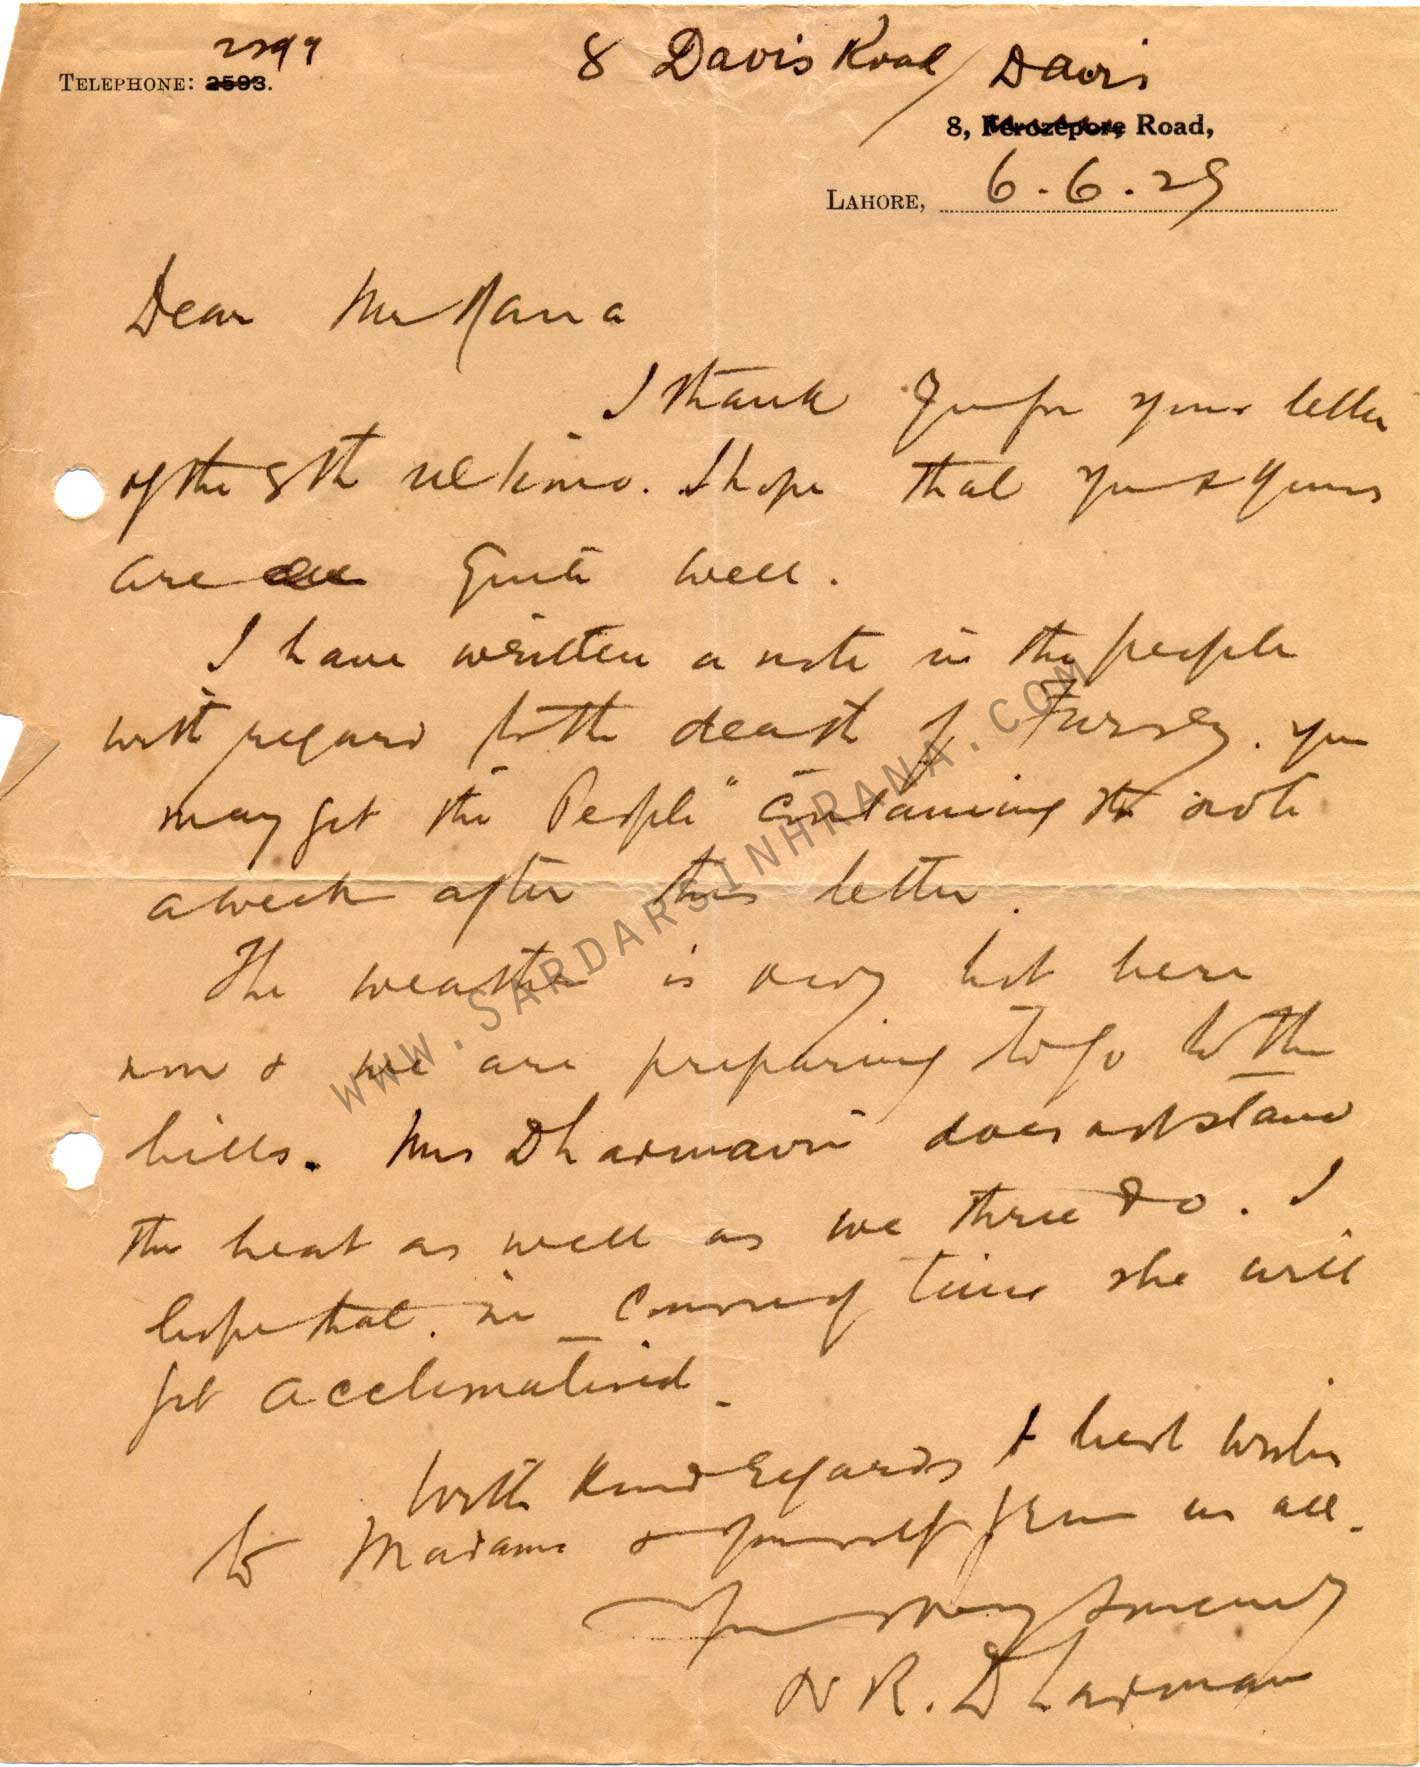 2299
TELEPHONE: 2593.
8 Davis Road / Davis
8, Ferozepore Road,
LAHORE, 6.6.29
Dear Mr Rana
I thank you for your letter
of the 8th ultimo. I hope that you & yours
are quite well.
I have written a note in the people
with regard to the death of . You
may get the People" containing the note
a week after this letter.
The weather is very hot here
now & we are preparing to go to the
hills. Mrs Dharmavir does not stand
the heat as well as we three do. I
hope that in course of time she will
get acclimatised.
With kind regards & best wishes
to Madame & yourself from us all.
Yours very sincerely
R. Dharmavir
WWW.SARDARSINHRANA.COM